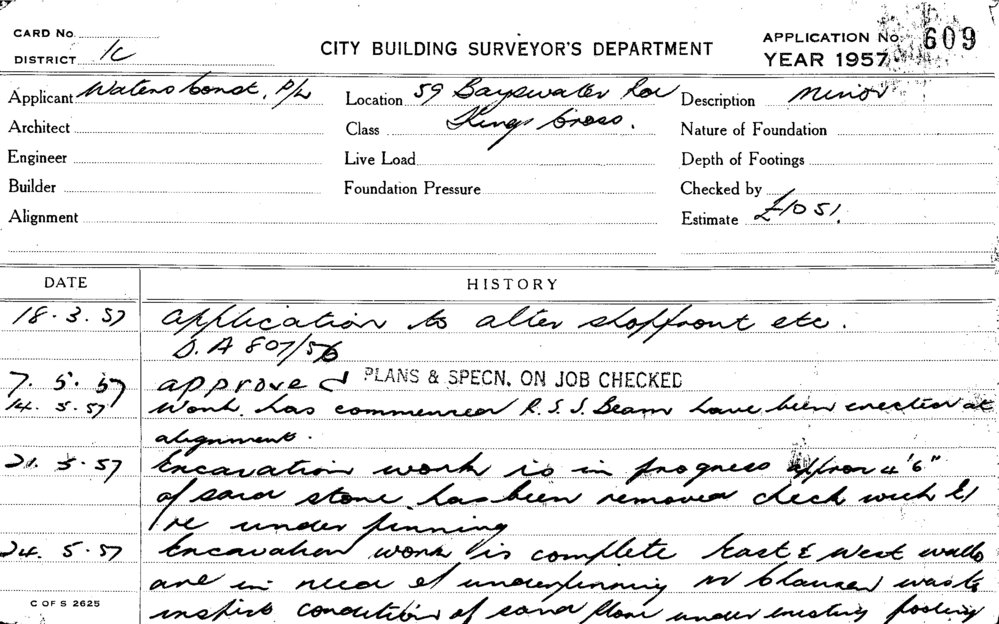 CARD No.
DISTRICT 1C
CITY BUILDING SURVEYOR'S DEPARTMENT
APPLICATION No. 609
YEAR 1957
Applicant Waters Const. P/L
Location 59 Bayswater Rd
Description Minor
Architect
Class Kings Cross.
Nature of Foundation
Engineer
Live Load
Depth of Footings
Builder
Foundation Pressure
Checked by
Alignment
Estimate £1051.
DATE HISTORY
18.3.57 Application to alter shopfront etc.
D.A 807/56
7.5.57 approved PLANS & SPECN. ON JOB CHECKED
14.5.57 Work has commenced R.S.J Beam have been erected at
alignment.
21.5.57 Excavation work is in progress approx 4'6"
of sand stone has been removed check with
re under pinning
24.5.57 Excavation work is complete East & West walls
are in need of underpinning Mr Clausen
inspect condition of sand stone under existing footing
C OF S 2625